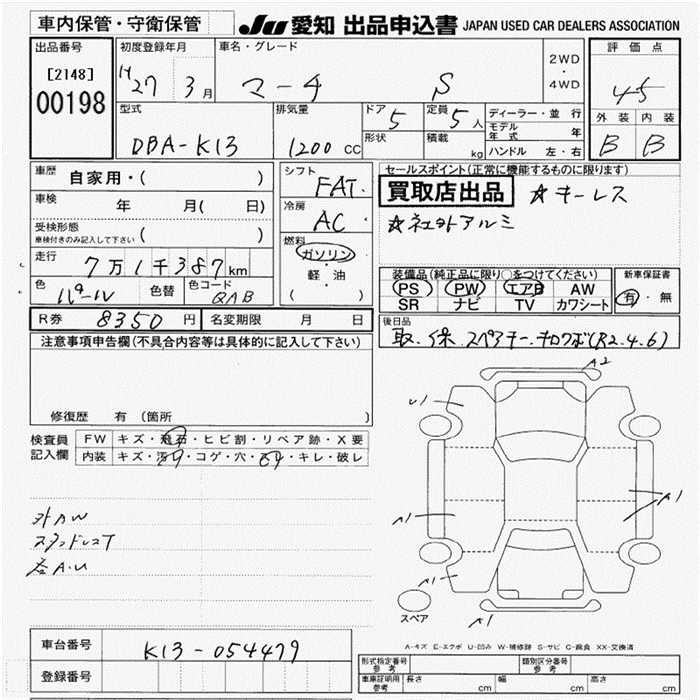 車内保管・守衛保管
JU 愛知 出品申込書 JAPAN USED CAR DEALERS ASSOCIATION
出品番号
[2148]
00198
初度登録年月
H27 3月
車名・グレード
マーチ S
2WD
・
4WD
評価点
4.5
外装 内装
B B
型式
DBA-K13
排気量
1200 CC
ドア 5
形状
定員 5人
積載 kg
ディーラー・並行
モデル年式 年
ハンドル 左・右
車歴 自家用・( )
車検 年 月( 日)
受検形態
車検付きのみ記入して下さい ( )
走行 7万1千387km
色 パール 色替 色コード QAB
シフト FAT
冷房 AC
燃料
ガソリン
・
軽・油
( )
セールスポイント(正常に機能するものに限ります)
買取店出品 ☆キーレス
☆社外アルミ
装備品(純正品に限り○をつけてください)
PS PW エアB AW
SR ナビ TV カワシート
新車保証書
有・無
R券 8350円 名変期限 月 日
後日品
取.保.スペアキー.
(R2.4.6)
注意事項申告欄(不具合内容等は具体的に記入して下さい)
修復歴 有(箇所 )
検査員記入欄
FW キズ・飛石・ヒビ割・リペア跡・X要
内装 キズ・汚れ・コゲ・穴・スレ・キレ・破レ
A2
U1
A1
A1
A1
A1
スペア
外AW
A-キズ E-エクボ U-凹み W-補修跡 S-サビ C-腐食 XX-交換済
車台番号 K13-054479
登録番号
形式指定番号 参考 類別区分番号 参考
車庫証明用 参考 長さ cm 幅 cm 高さ cm